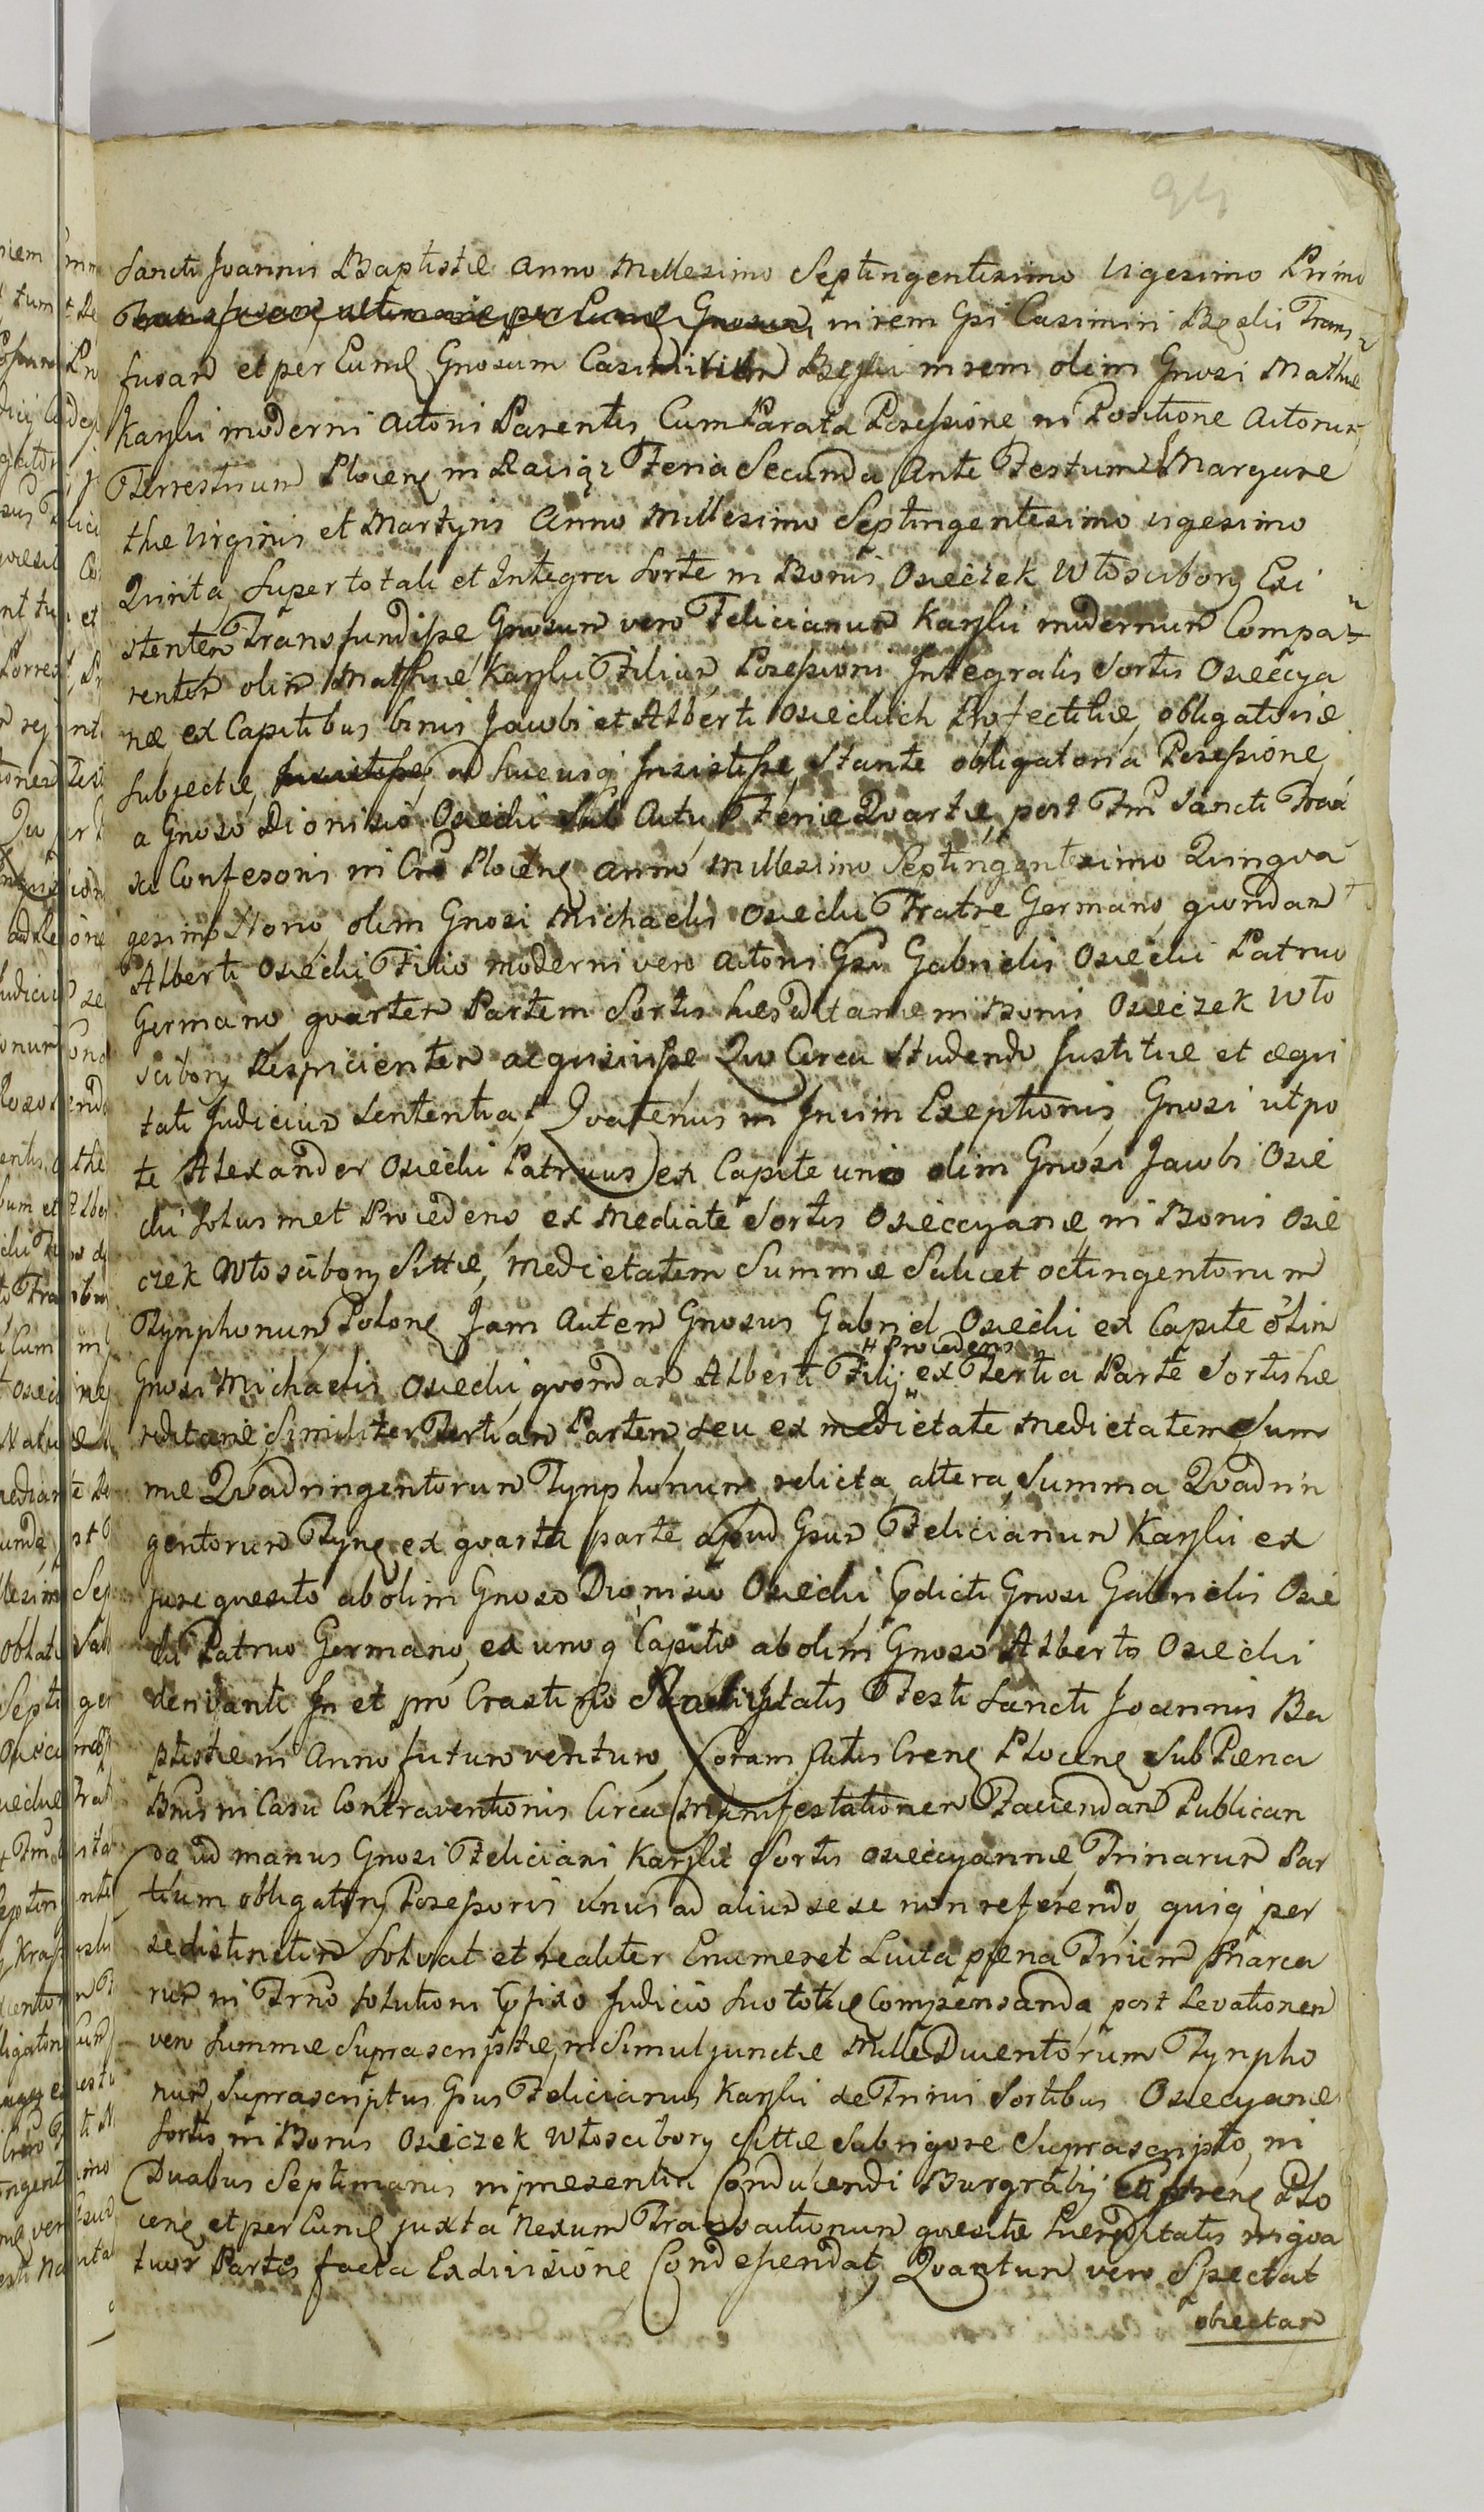 94
Sancti Joannis Baptistæ Anno Millesimo Septingentesimo Vigesimo Primo
in rem Gsi Casimiri Bęski Trans
fusam et per Eund Gnosum Casimirum Bęski in rem olim Gnosi Mathiæ
Karski moderni Actoris Parentis, Cum Parata Possessione in Positione Actorum
Terrestrium Plocen in Raciąż Feria Secunda Ante Festum S Margare
thæ Virginis et Martyris Anno Millesimo Septingentesimo vigesimo
Quinta, Super totali et Integra Sorte in Bonis Osieczek Włościbory Exi
stentem Transfundisse Gnosum vero Felicianum Karski modernum Compa
rentem olim Mathiæ Karski Filium, Possessioni Integralis Sortis Osieccya
næ, ex Capitibus binis Jacobi et Alberti Osieckich Profectitiæ, obligatoriæ
Subjectæ, ad hucusq Insistisse, Stante obligatoria Possessione,
a Gnoso Dionisio Osiecki Sub Actu Feriæ Quartæ, post Fm Sancti Fran
sci Confesoris in Cro Plocen Anno Millesimo Septingentesimo Quinqva
gesimo Nono, olim Gnosi Michaelis Osiecki Fratre Germano, qvondam
Alberti Osiecki Filio moderni vero Actoris Gsi Gabrielis Osiecki Patruo
Germano, qvartem Partem Sortis hæreditariæ in Bonis Osieczek Wło
scibory Respicientem acqvisivisse Quo Circa Studendo Justitiæ et æqvi
tati Judicium Sententiat, Qvatenus in Inim Exeptionis, Gnosi utpo
te Alexander Osiecki Patruus ex Capite uno olim Gnosi Jacobi Osie
cki Solus met Procedens, ex Mediate Sortis Osieccyanæ, in Bonis Osie
czek Włoscibory Sittæ, Medietatem Summæ Scilicet octingentorum
Tynphonum Polone Jam Autem Gnosus Gabriel Osiecki ex Capite olim
# Procedens
Gnosi Michaelis Osiecki, qvondam Alberti Filij # ex Tertia Parte Sortis hæ
reditariæ Similiter Tertiam Partem, seu ex medietate Medietatem Sum
mæ Qvadringentorum Tynphonum, relicta altera Summa Qvadrin
gentorum Tyng ex qvarta parte apud Gsum Felicianum Karski ex
jure qvesito ab olim Gnoso Dionisio Osiecki, Pdicti Gnosi Gabrielis Osie
cki Patruo Germano, ex unoq Capite ab olim Gnoso Alberto Osiecki
derivanti In et pro Crastino Festi Sancti Joannis Ba
ptistæ in Anno futuro venturo, Coram Actis Cren Plocen, Sub Pæna
Bnis in Casu Contraventionis Circa Manifestationem Faciendam Publican
da ad manus Gnosi Feliciani Karski Sortis osieccyannæ Trinarum Par
tium obligatorij Possessoris unus ad alium sese non referendo, quisq per
se distinctim Solvat et realiter Enumeret Luita pæna Trium Marca
rum in Trno Solutioni Pfixo Judicio huo toties Compensanda, post Levationem
vero Summæ Suprascriptæ, in Simul junctæ Mille Ducentorum Tynpho
num, Suprascriptus Gsus Felicianus Karski de Trinis Sortibus Osiecyanæ
Sortis in Bonis Osieczek Włoscibory Sittæ Sub rigore Suprascripto, in
Duabus Septimanis in præsentia Conducendi Burgrabij Plo
cen, et per Eund juxta Nexum Transactionum qvesitæ hæreditatis in qva
tuor Partes facta Exdivisione Condescendat, Qvantum vero Spectat
obiectam